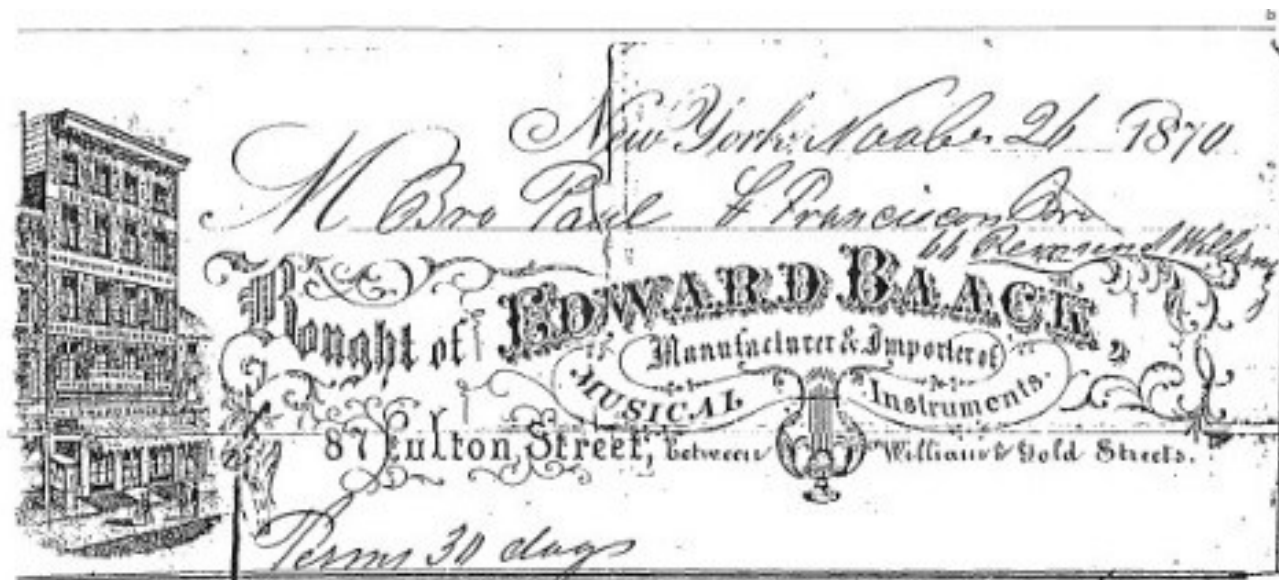 New York, November 26 1870
M Bro Paul St Franciscan Bro
66
Bought of EDWARD BAACK,
Manufacturer & Importer of
MUSICAL Instruments.
87 Fulton Street, between William & Gold Streets.
Terms 30 days